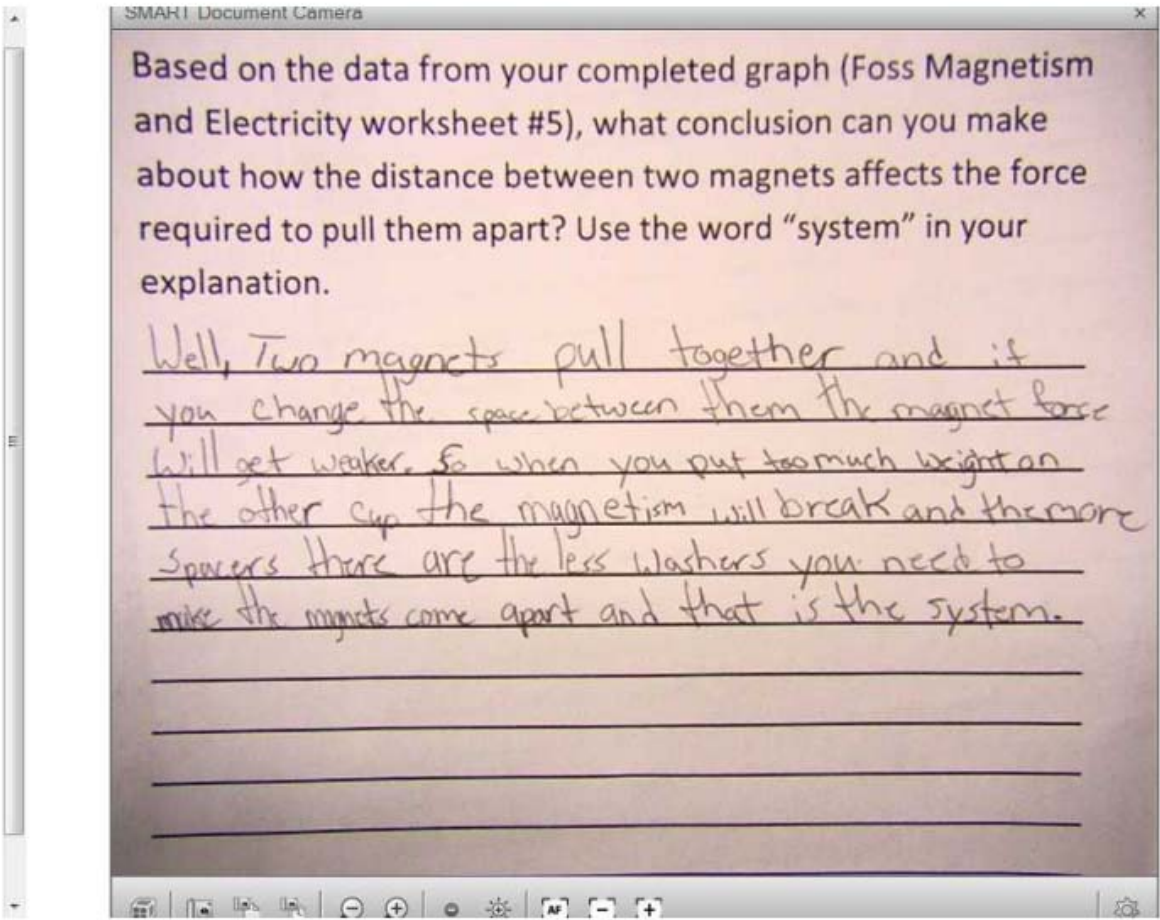 SMART Document Camera
Based on the data from your completed graph (Foss Magnetism
and Electricity worksheet #5), what conclusion can you make
about how the distance between two magnets affects the force
required to pull them apart? Use the word “system” in your
explanation.
Well, Two magnets pull together and if
you change the space between them the magnet force
will get weaker. So when you put too much weight on
the other cup the magnetism will break and the more
spacers there are the less washers you need to
make the mgnets come apart and that is the system.
AF